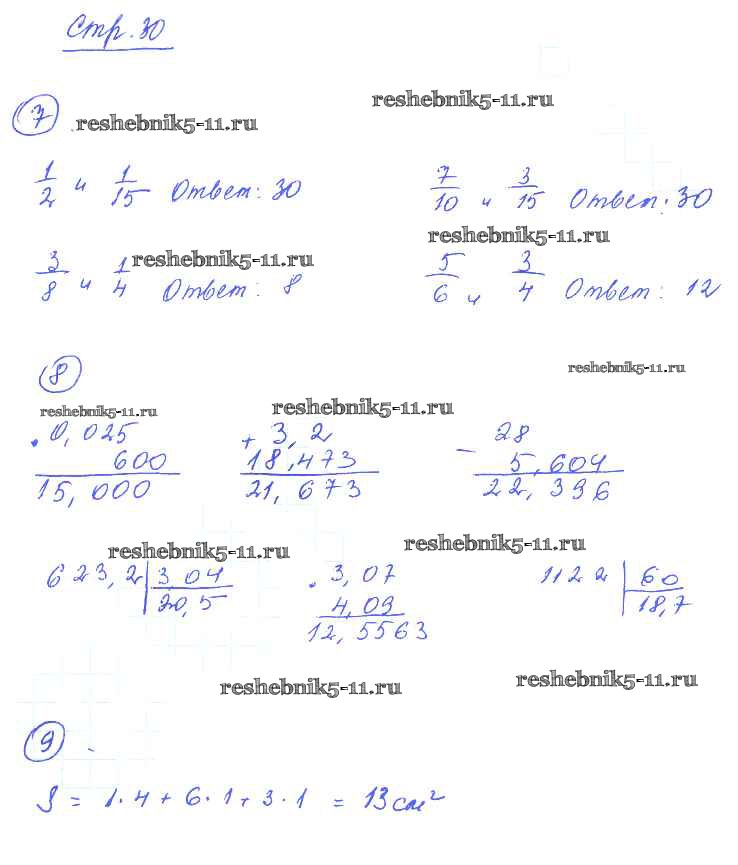 Стр. 30
reshebnik5-11.ru
7 reshebnik5-11.ru
1/2 и 1/15 Ответ: 30
7/10 и 3/15 Ответ: 30
reshebnik5-11.ru
3/8 и 1/4 Ответ: 8
reshebnik5-11.ru
5/6 и 3/4 Ответ: 12
8
reshebnik5-11.ru
reshebnik5-11.ru
reshebnik5-11.ru
· 0,025
600
15,000
+ 3,2
18,473
21,673
− 28
5,604
22,396
reshebnik5-11.ru
reshebnik5-11.ru
623,2 | 3 04
20,5
· 3,07
4,09
12,5563
1122 | 60
18,7
reshebnik5-11.ru
reshebnik5-11.ru
9
S = 1·4 + 6·1 + 3·1 = 13 см²